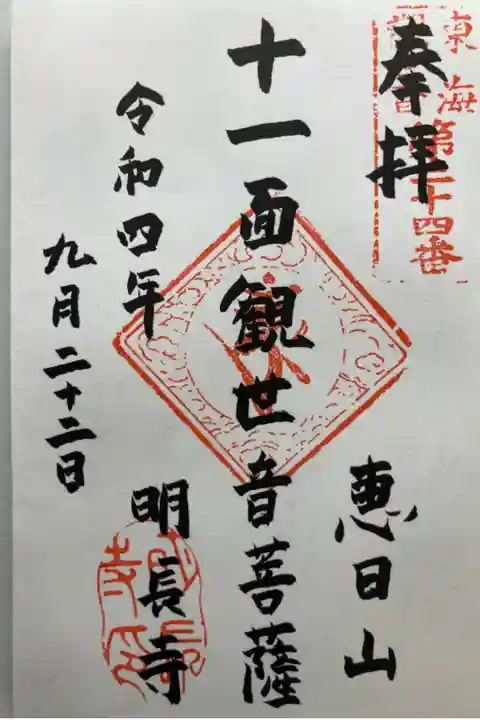 奉拝
東海
第二十四番
恵日山
十一面観世音菩薩
明長寺
令和四年
九月二十二日